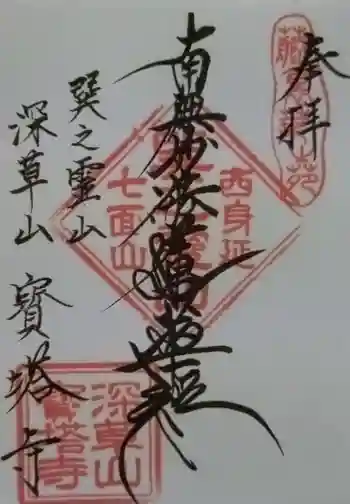 奉拝
南無妙法蓮華経
西身延
七面山
巽之靈山
深草山
寳塔寺
深草山
寳塔寺